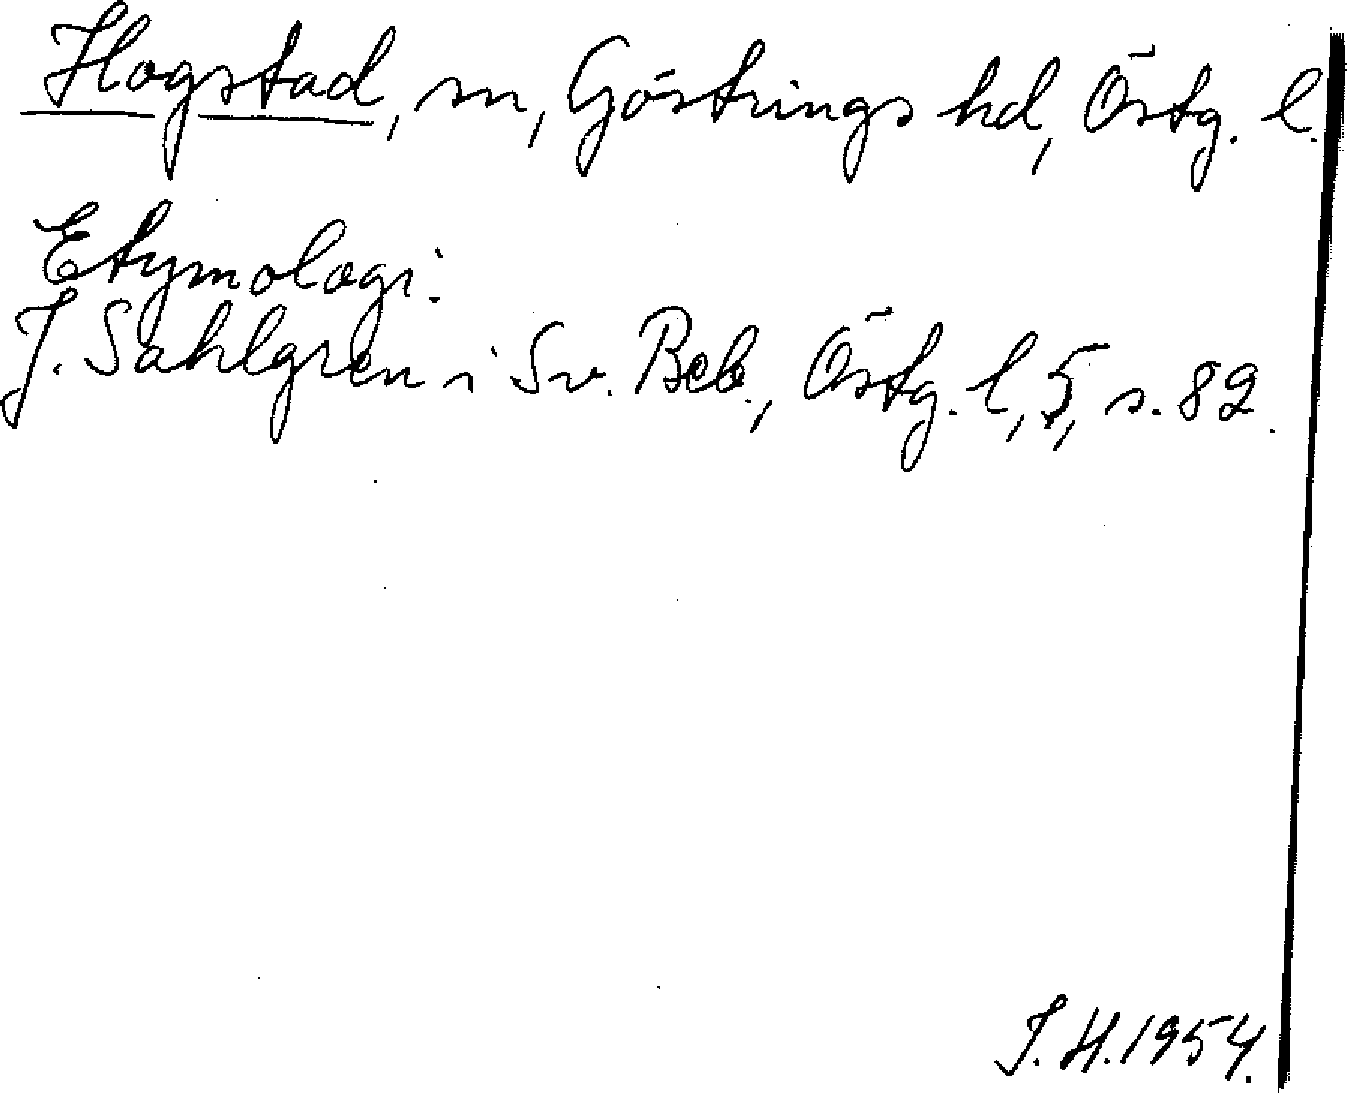 Hogstad, sn, Göstrings hd, Östg. l.
Etymologi:
J. Sahlgren i Sv. Beb., Östg. l, 5, s. 82.
J. H. 1954.